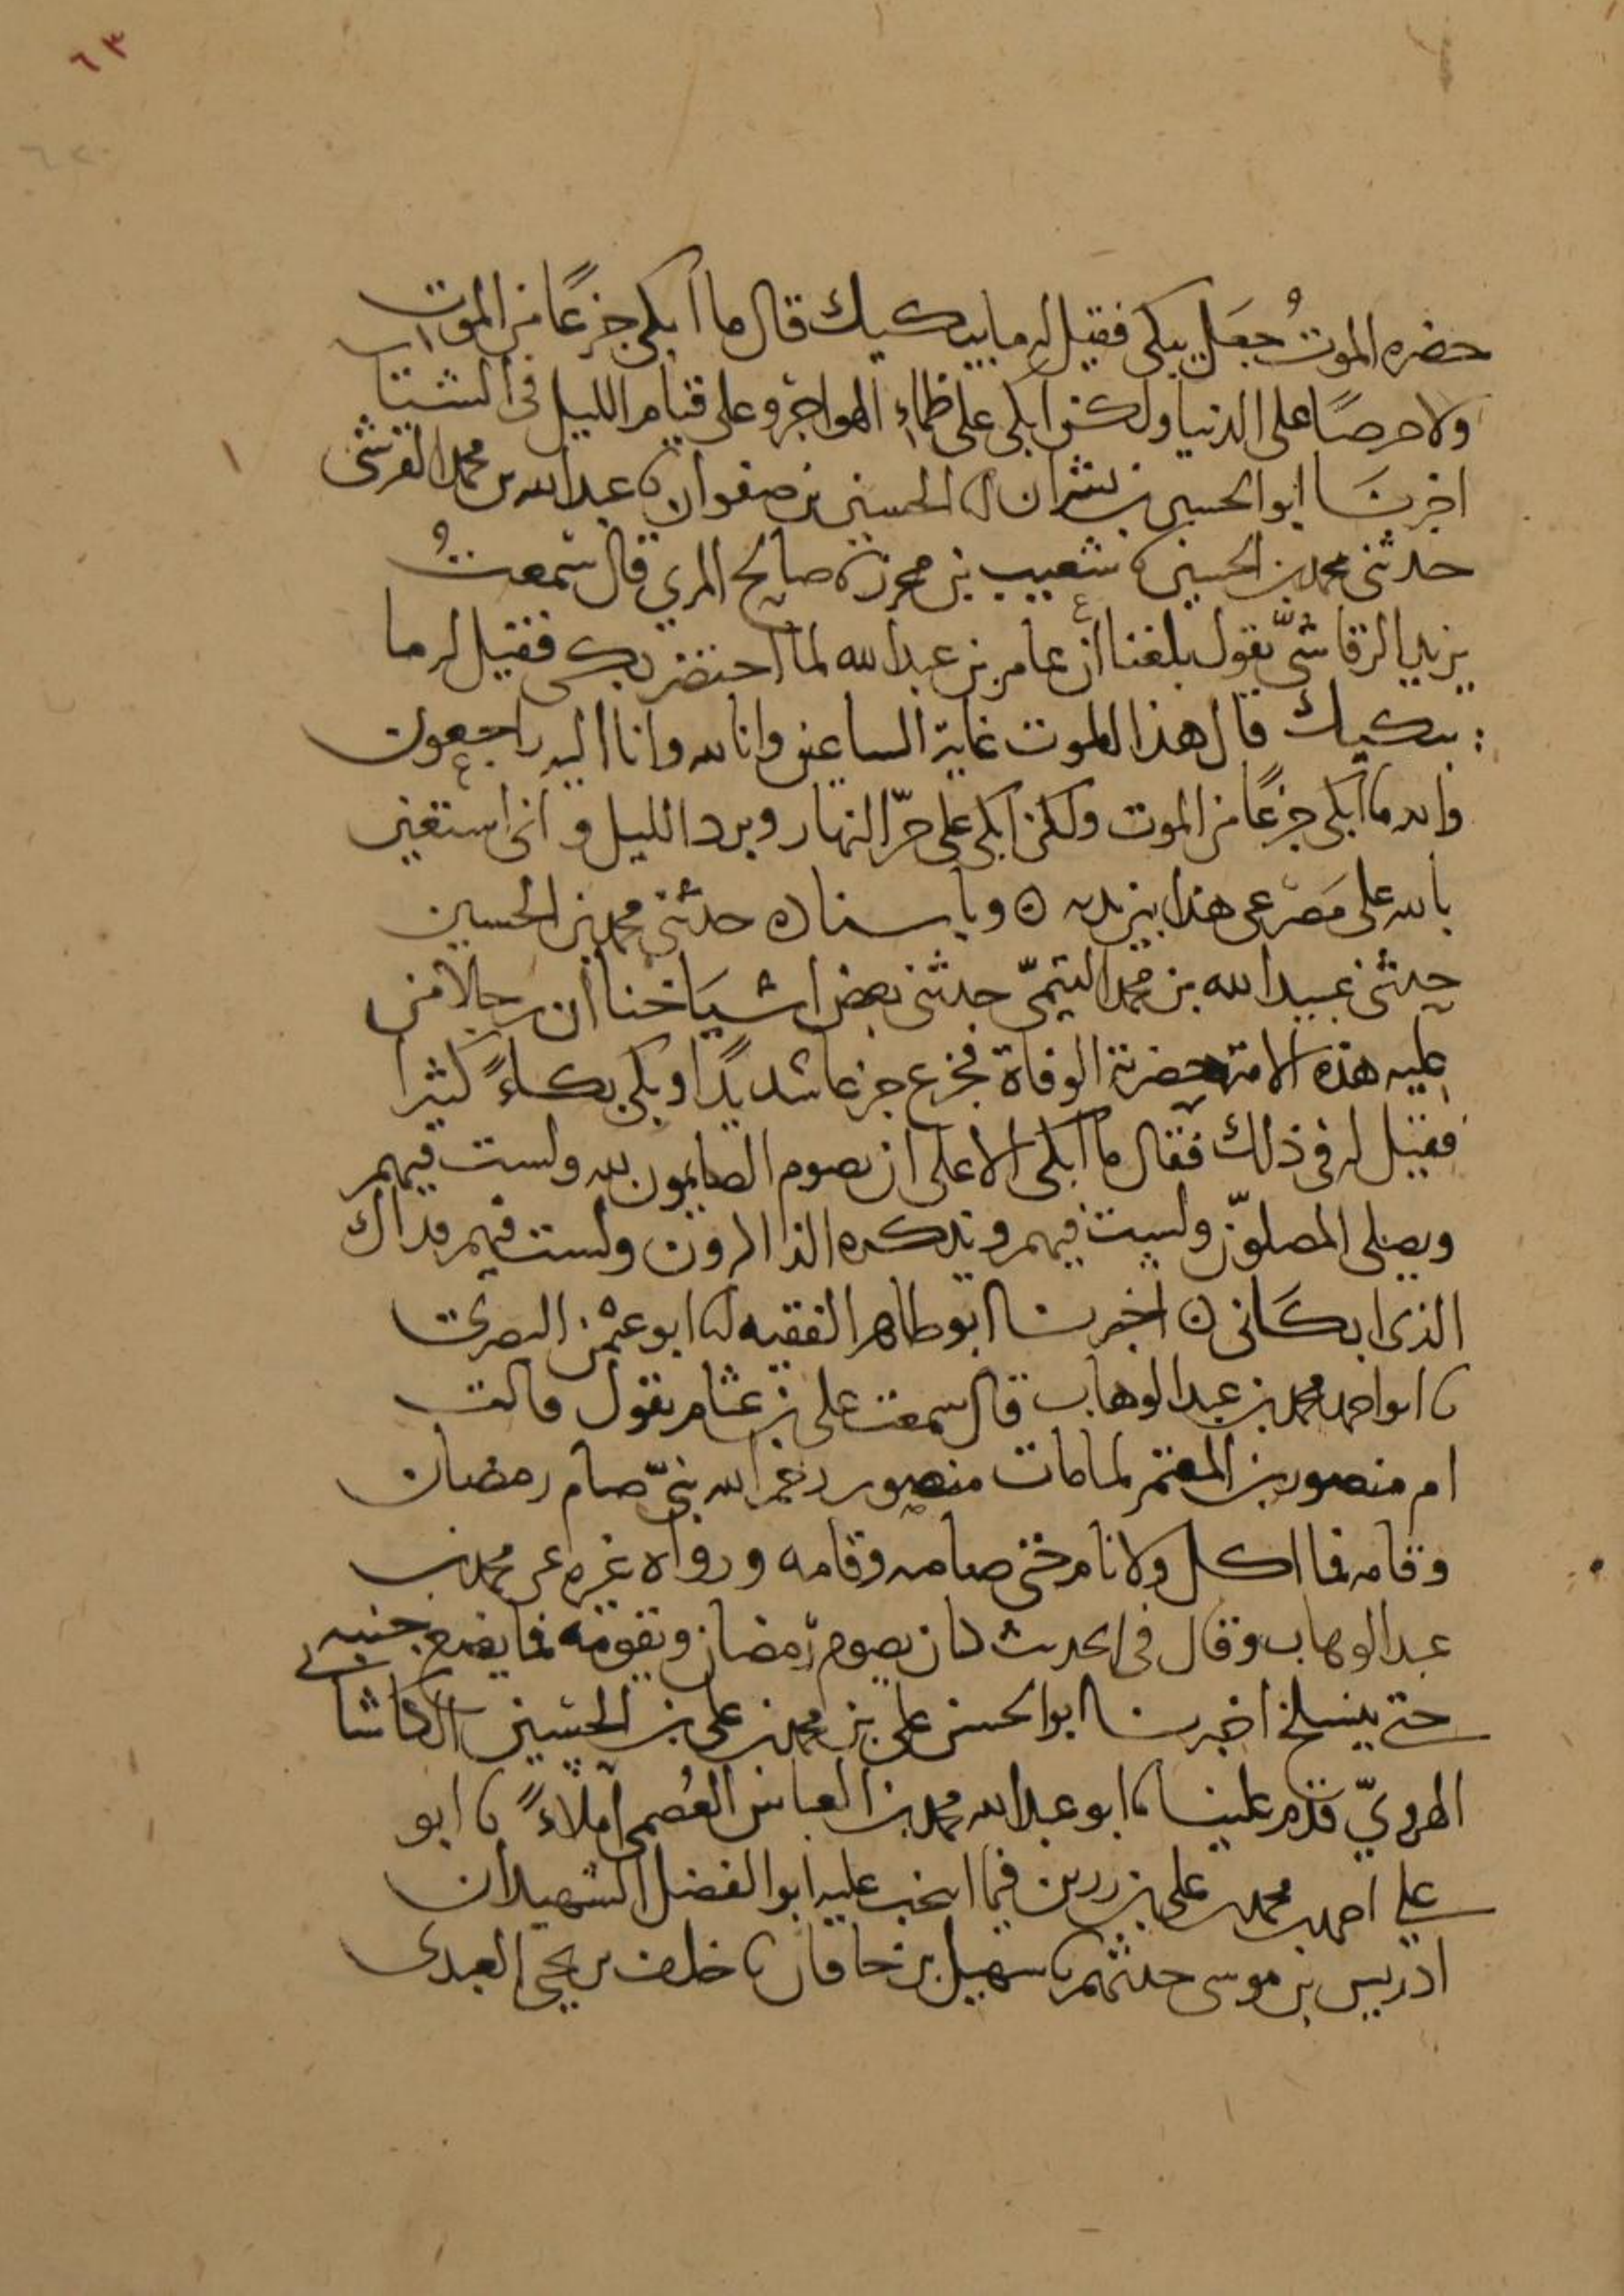 ٦٣
حضره الموتُ جعَل يبكي فقيل له ما يبكيك قال ما أبكي جزعًا من الموت
ولا حرصًا على الدنيا ولكني أبكي على ظماءِ الهواجر وعلى قيام الليل في الشتا
اخبرنَا ابو الحسين بن بشران انا الحسين بن صفوان نا عبد الله بن محمد القرشي
حدثني محمد بن الحسين نا شعيب بن محرز نا صالح المري قال سمعتُ
يزيد الرقاشيَّ يقول بلغنا أن عامر بن عبد الله لما احتضر بكى فقيل له ما
يبكيك قال هذا الموت غاية الساعين وانا لله وانا اليه راجعون
والله ما أبكي جزعًا من الموت ولكن ابكي على حرّ النهار وبرد الليل و اني استعين
بالله على مَصْرعي هذا بين يديه ٥ وباسناده حدثني محمد بن الحسين
حدثني عبيد الله بن محمد التيميّ حدثني بعض اشيَاخنا أن رجالا من
عليه هذه الامة حضرته الوفاة فجزع جزعا شديدًا وبكى بكاءً كثيرا
فقيل له في ذلك فقال ما أبكي الا على ان يصوم الصايمون لله ولست فيهم
ويصلي المصلوّن ولست فيهم ويذكره الذاكرون ولست فيهم فذاك
الذي ابكَاني ٥ اخبرنا ابو طاهر الفقيه انا ابو عثمن البصري
نا ابو احمد محمد بن عبد الوهاب قال سمعت علي بن عثام يقول قالت
ام منصور بن المعتمر لما مات منصور رحم الله بنيّ صام رمضان
وقامه فما اكل ولا نام حتى صامه وقامه ورواه غيره عن محمد بن
عبد الوهاب وقال في الحديث كان يصوم رمضان ويقومه فما يضع جنبيه
حتى ينسلخ اخبرنا ابو الحسن علي بن محمد بن علي بن الحسين الكاشا
الهرويّ قدم علينا نا ابو عبد الله محمد بن العباس العُصمي املاءً نا ابو
علي احمد بن محمد بن علي بن رزين فيما انتخب عليه ابو الفضل الشهيد ان
ادريس بن موسى حدثهم نا سهيل بن خاقان نا خلف بن يحيى العبدي